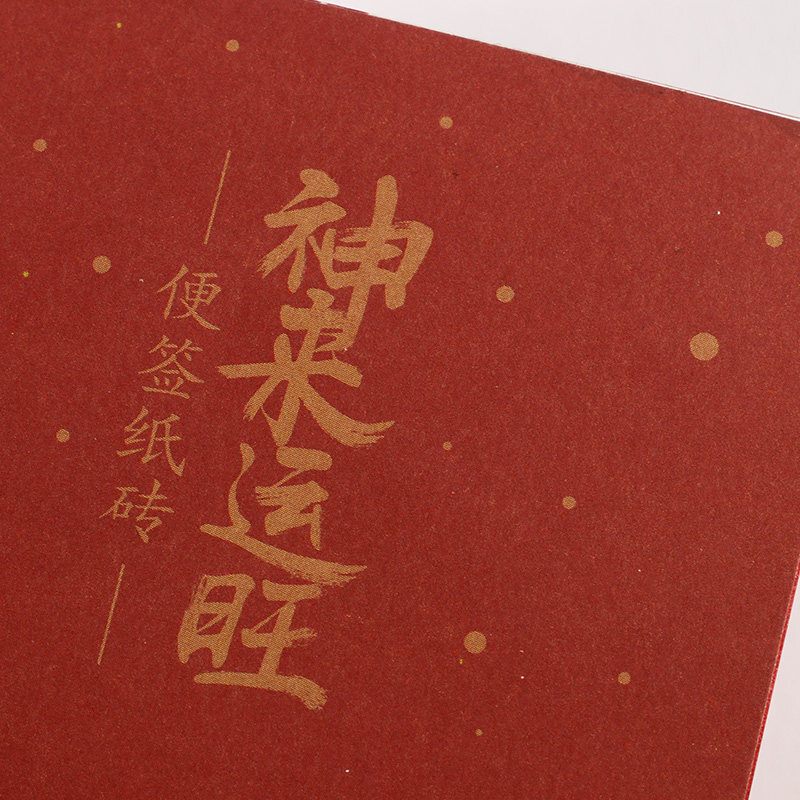 神来运旺
便签纸砖